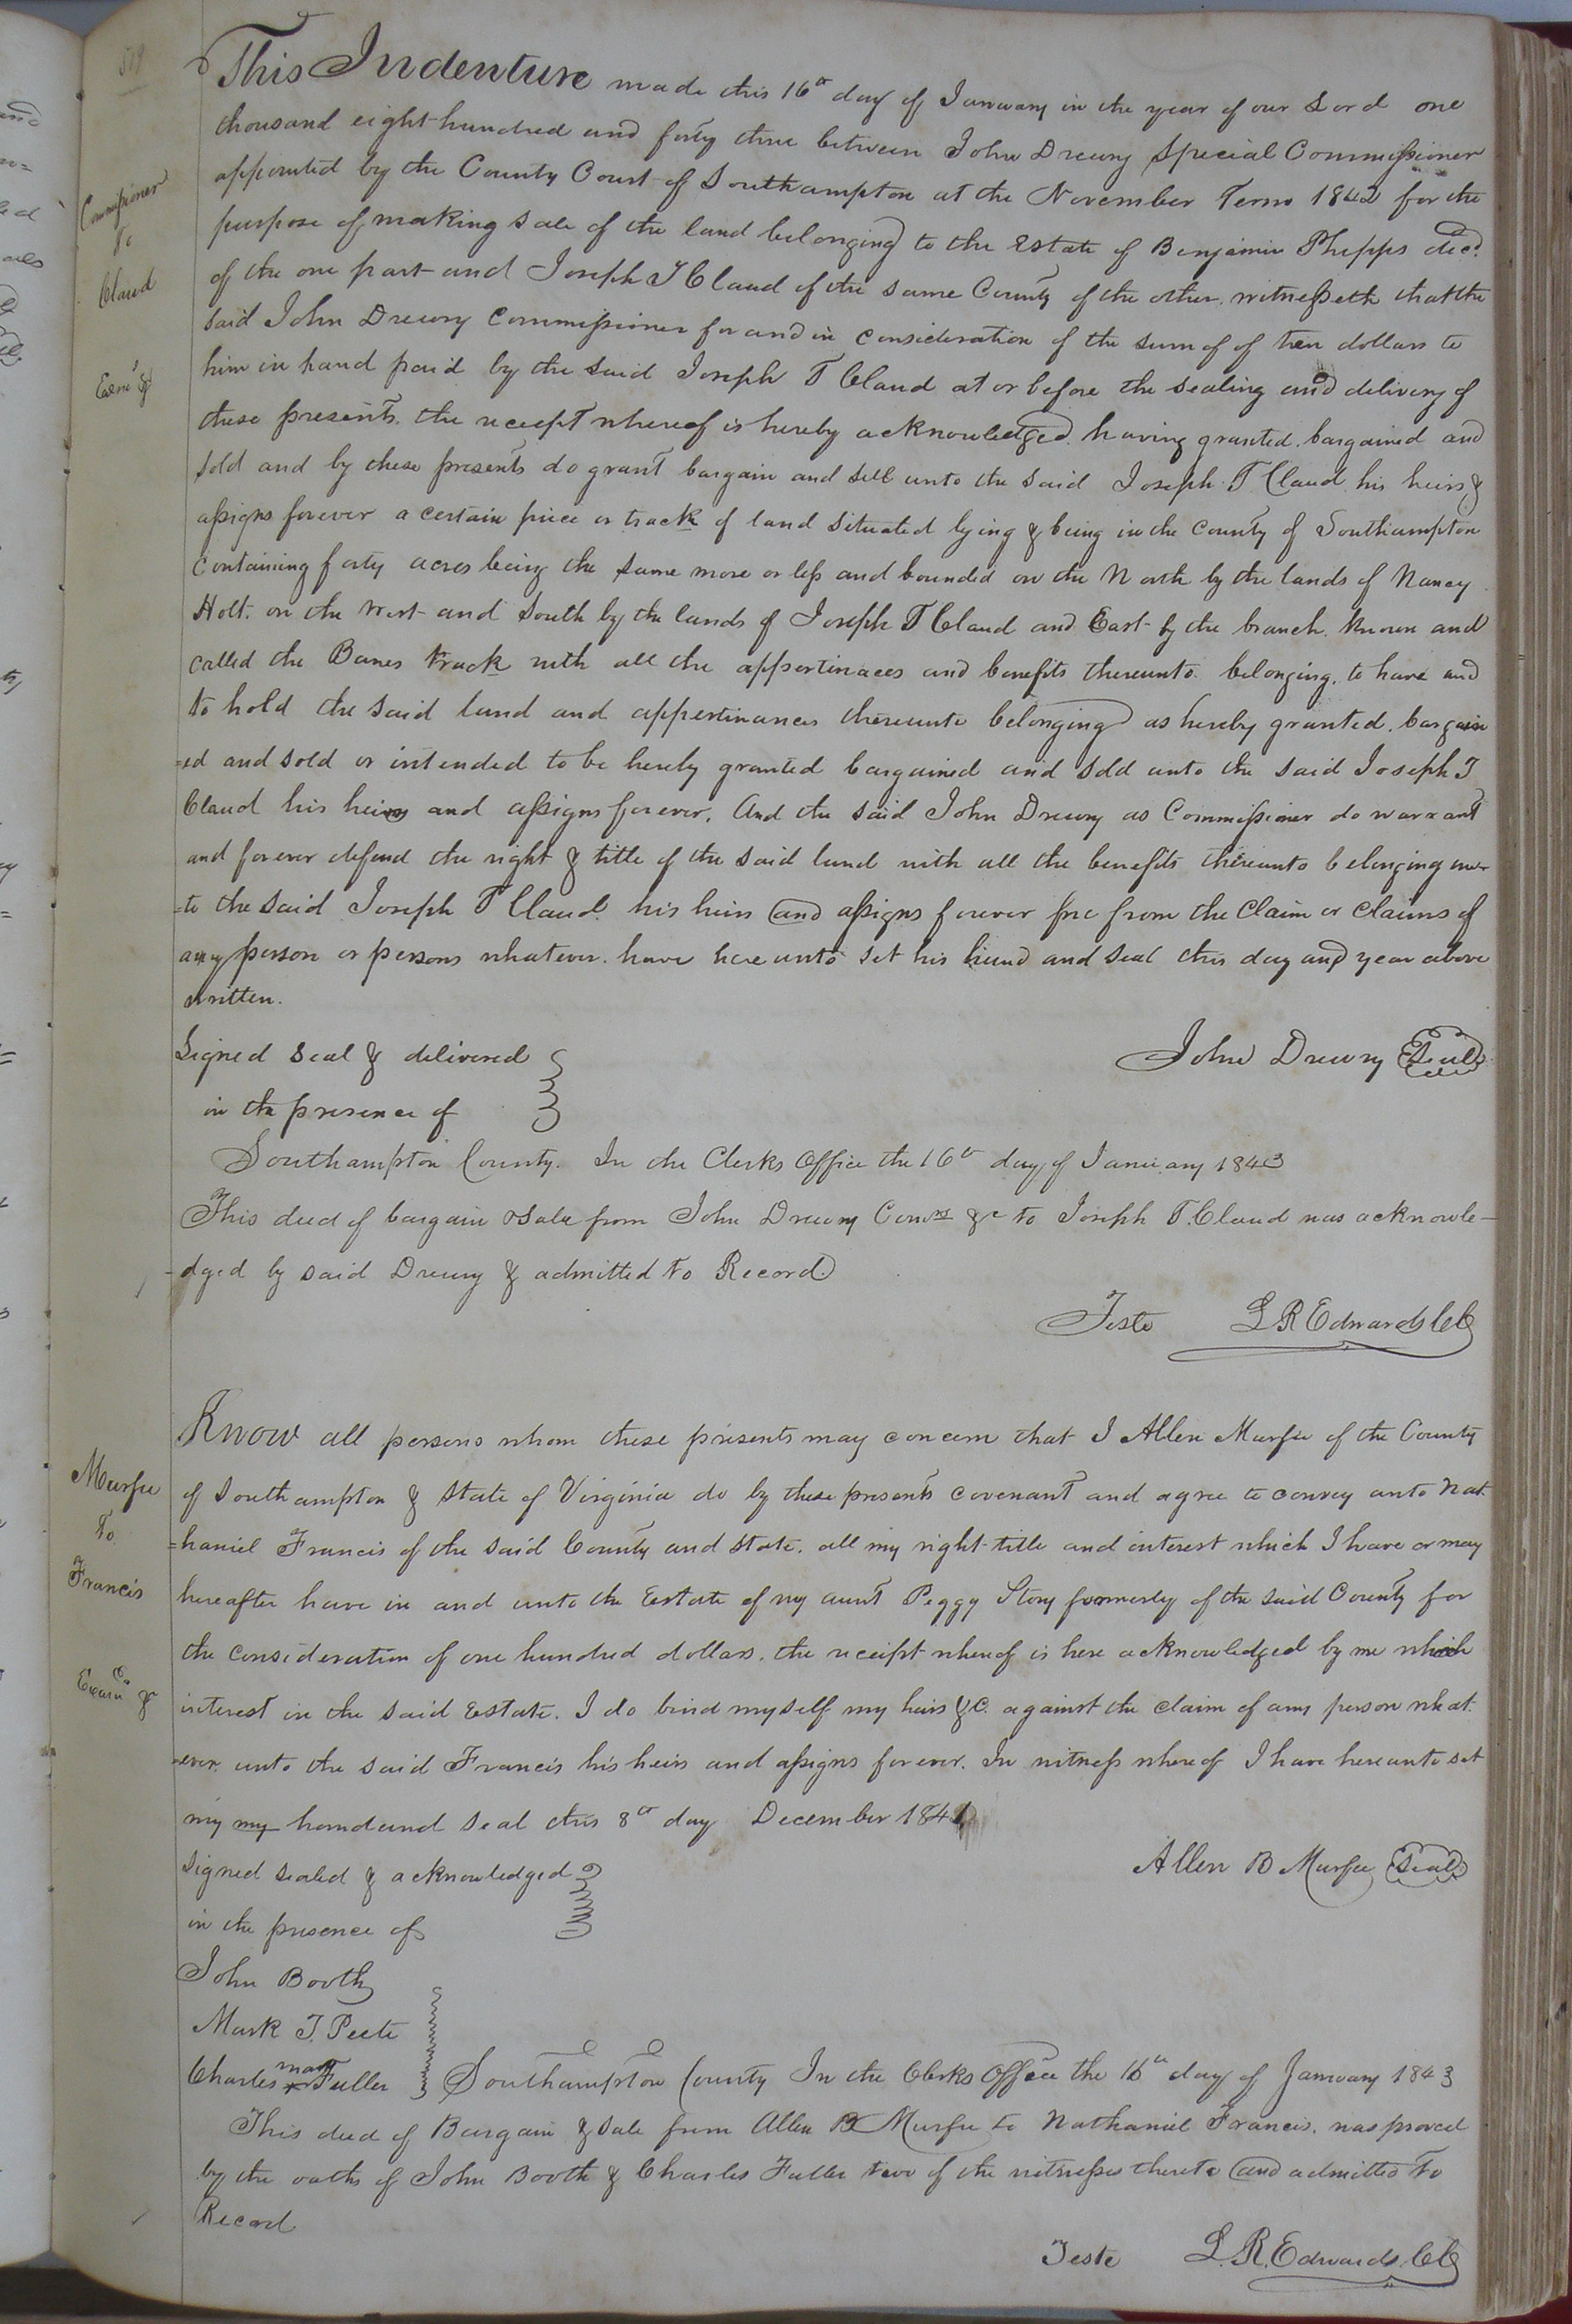 519
This Indenture made this 16th day of January in the year of our Lord one
thousand eight hundred and forty three between John Drewry Special Commissioner
appointed by the County Court of Southampton at the November Term 1842 for the
purpose of making sale of the land belonging to the Estate of Benjamin Phipps decd.
of the one part and Joseph T Claud of the same County of the other, witnesseth that the
said John Drewry Commissioner for and in consideration of the sum of of ten dollars to
him in hand paid by the said Joseph T Claud at or before the sealing and delivery of
these presents, the receipt whereof is hereby acknowledged, having granted, bargained and
sold and by these presents do grant bargain and sell unto the said Joseph T Claud his heirs &
assigns forever a certain piece or track of land situated lying & being in the county of Southampton
containing forty acres being the same more or less and bounded on the North by the lands of Nancy
Holt. on the West and South by the lands of Joseph T Claud and East by the branch, known and
called the Banes track with all the appertinaces and benefits thereunto belonging, to have and
to hold the said land and appertinances thereunto belonging as hereby granted, bargain
=ed and sold or intended to be hereby granted bargained and sold unto the said Joseph T
Claud his heirs and assigns forever. And the said John Drewry as Commissioner do warrant
and forever defend the right & title of the said land with all the benefits thereunto belonging un-
=to the said Joseph T Claud his heirs and assigns forever free from the Claim or Claims of
any person or persons whatever. have hereunto set his hand and seal this day and year above
written.
Commissioner
To
Claud
Signed Seal & delivered
in the presence of
John Drewry Seal
Southampton County. In the Clerks Office the 16th day of January 1843
This deed of bargain & sale from John Drewry Comr &c to Joseph T. Claud was acknowle-
-dged by said Drewry & admitted to Record
Teste L R Edwards CC
Know all persons whom these presents may concern that I Allen Murfee of the County
of Southampton & State of Virginia do by these presents covenant and agree to convey unto Nat-
=haniel Francis of the said County and State, all my right title and interest which I have or may
hereafter have in and unto the Estate of my aunt Peggy Story formerly of the said County for
the consideration of one hundred dollars, the receipt whereof is here acknowledged by me which
interest in the said Estate. I do bind myself my heirs &C. against the claim of any person what-
-ever, unto the said Francis his heirs and assigns forever. In witness whereof I have hereunto set
my my hand and seal this 8th day December 1841
Murfee
To
Francis
Allen B Murfee Seal
Signed sealed & acknowledged
in the presence of
John Booth
Mark T. Peete
Charles mark x Fuller
Southampton County In the Clerks Office the 16th day of January 1843
This deed of Bargain & sale from Allen B Murfee to Nathaniel Francis, was proved
by the oaths of John Booth & Charles Fuller two of the witnesses thereto and admitted to
Record
Teste L. R. Edwards CC